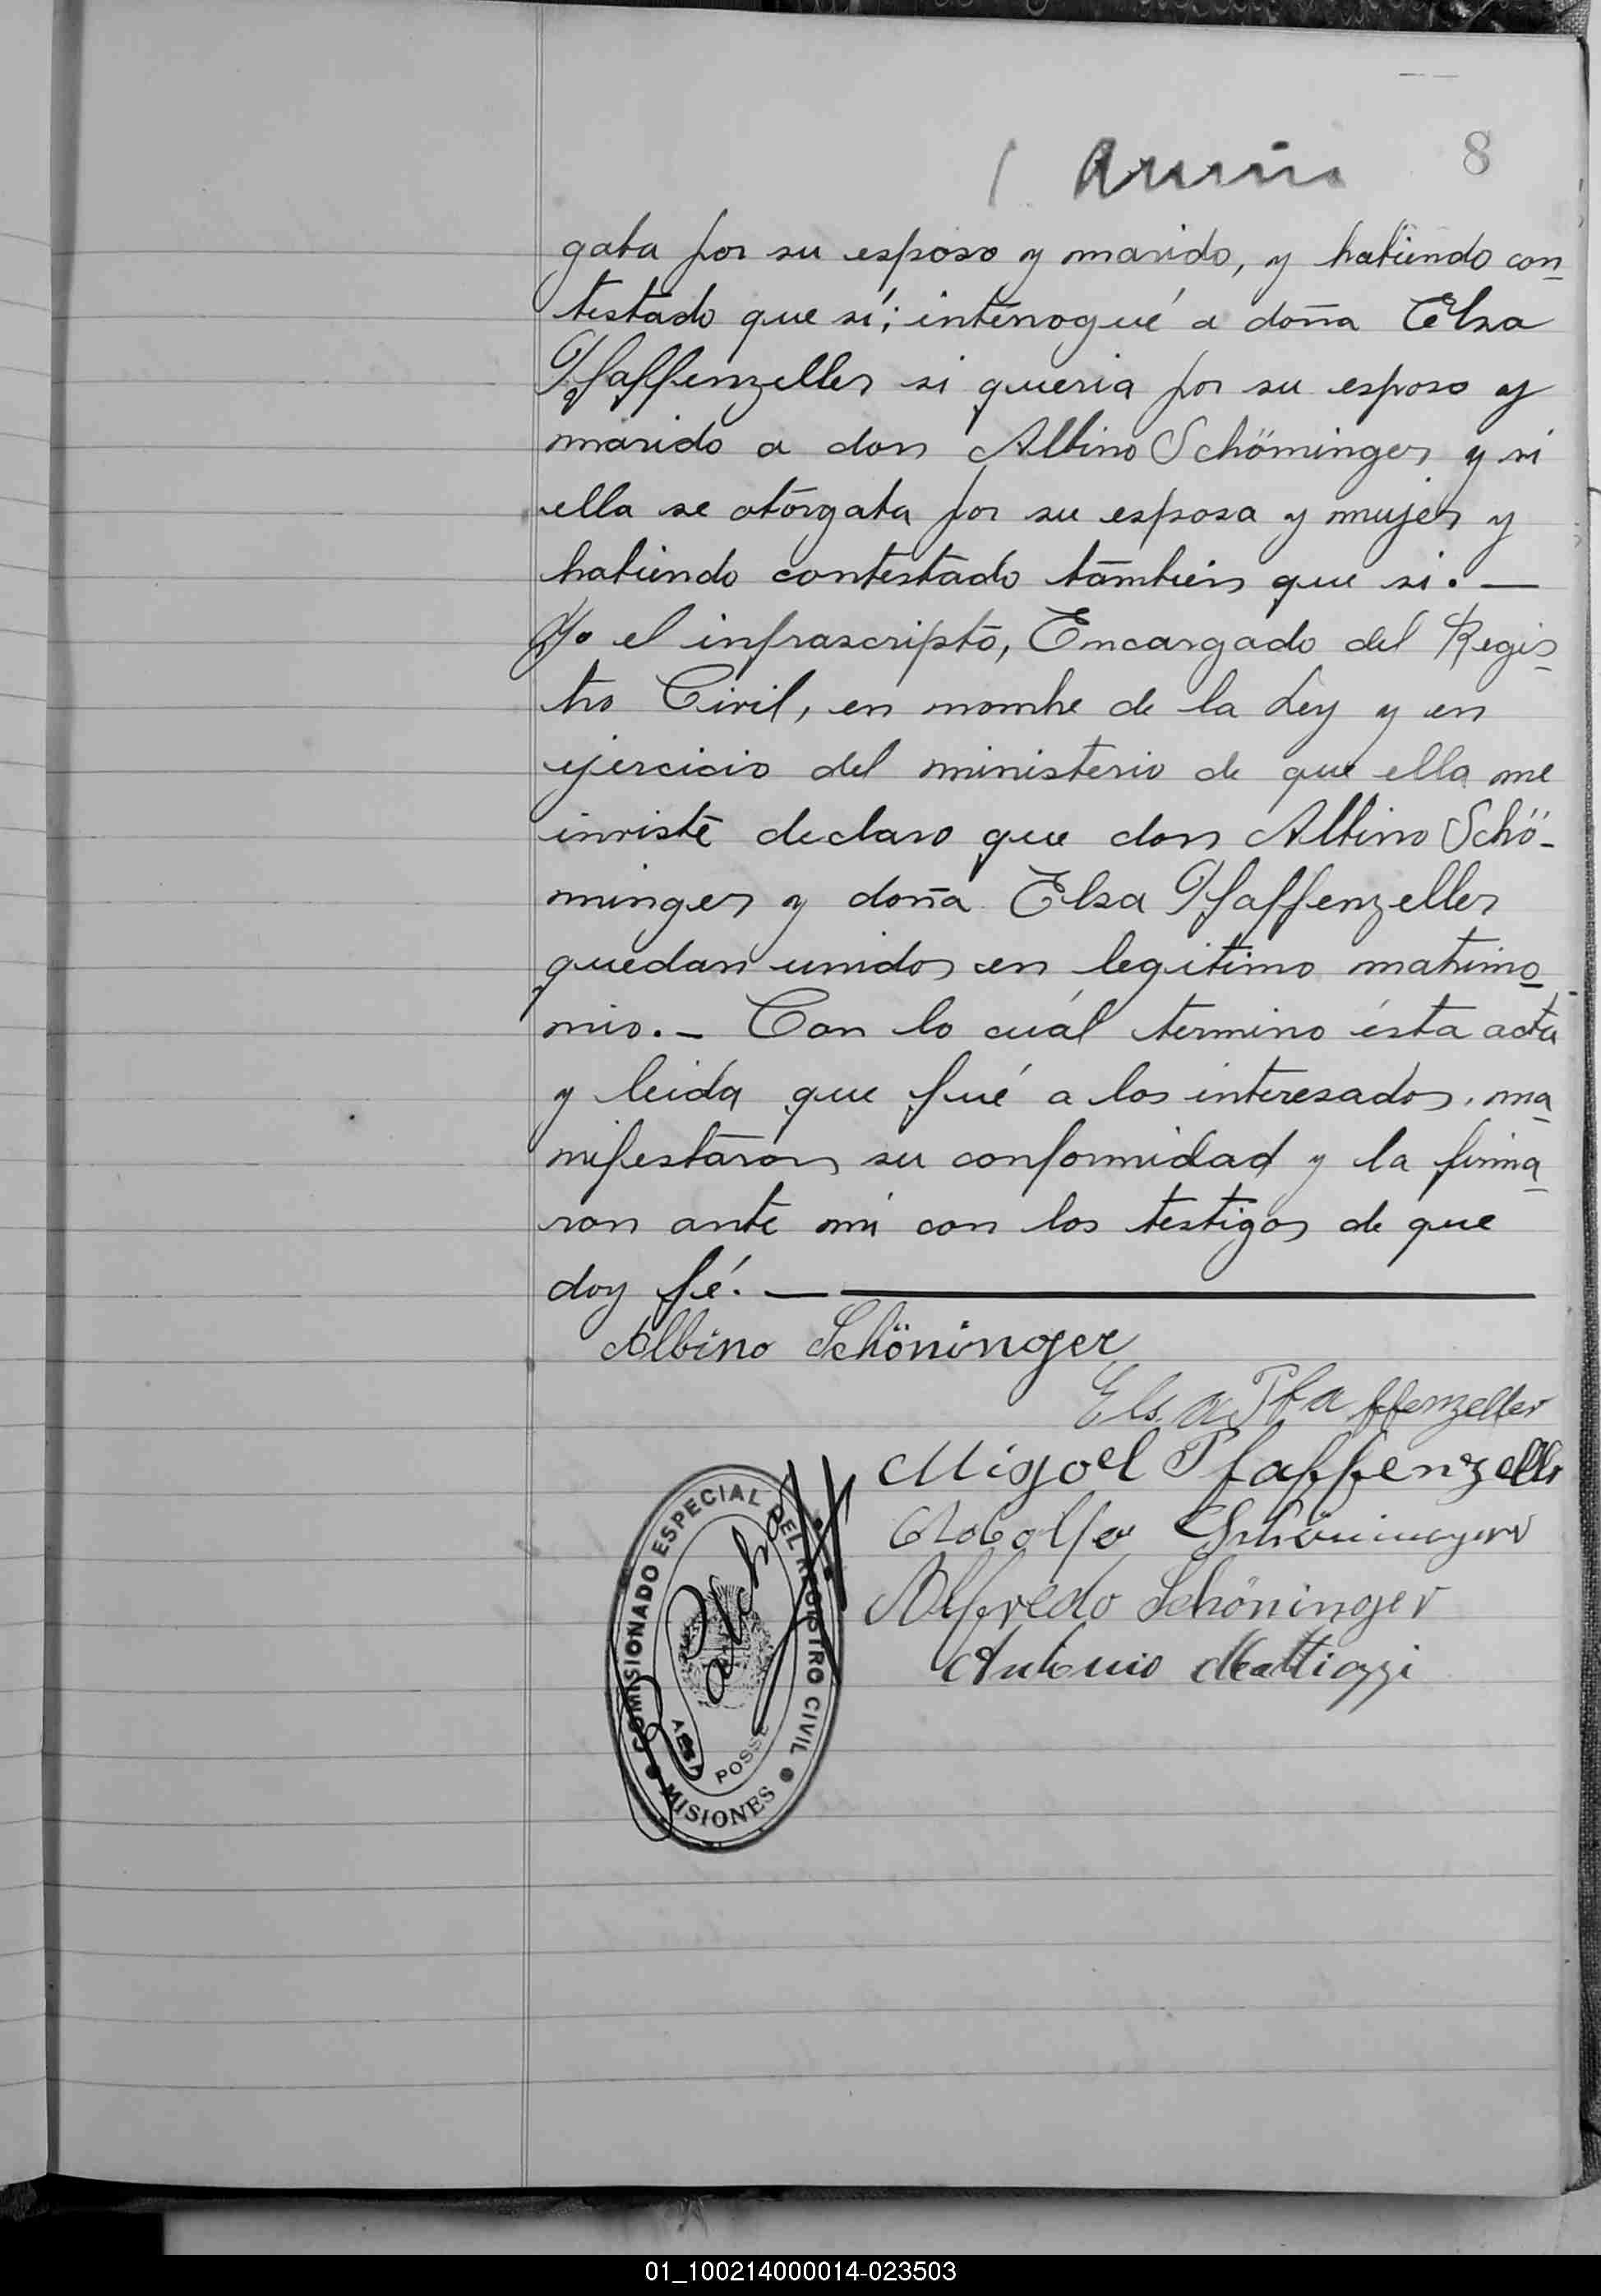 8
gaba por su esposo y marido, y habiendo con
testado que sí; interrogué a doña Elsa
Pfaffenzeller si queria por su esposo y
marido a don Albino Schöninger y si
ella se otorgaba por su esposa y mujer y
habiendo contestado tambien que si. —
Yo el infrascripto, Encargado del Regis
tro Civil, en nombre de la Ley y en
ejercicio del ministerio de que ella me
inviste declaro que don Albino Schö-
ninger y doña Elsa Pfaffenzeller
quedan unidos en legitimo matrimo
nio.- Con lo cuál termino ésta acta
y leida que fué a los interesados, ma
nifestaron su conformidad y la firma
ron ante mi con los testigos de que
doy fé. —
Albino Schöninger
Elsa Pfaffenzeller
Migoel Pfaffenzeller
Rodolfo Schöninger
Alfredo Schöninger
Antonio Mattiozzi
COMISIONADO ESPECIAL DEL REGISTRO CIVIL
POSSE
MISIONES
01_100214000014-023503